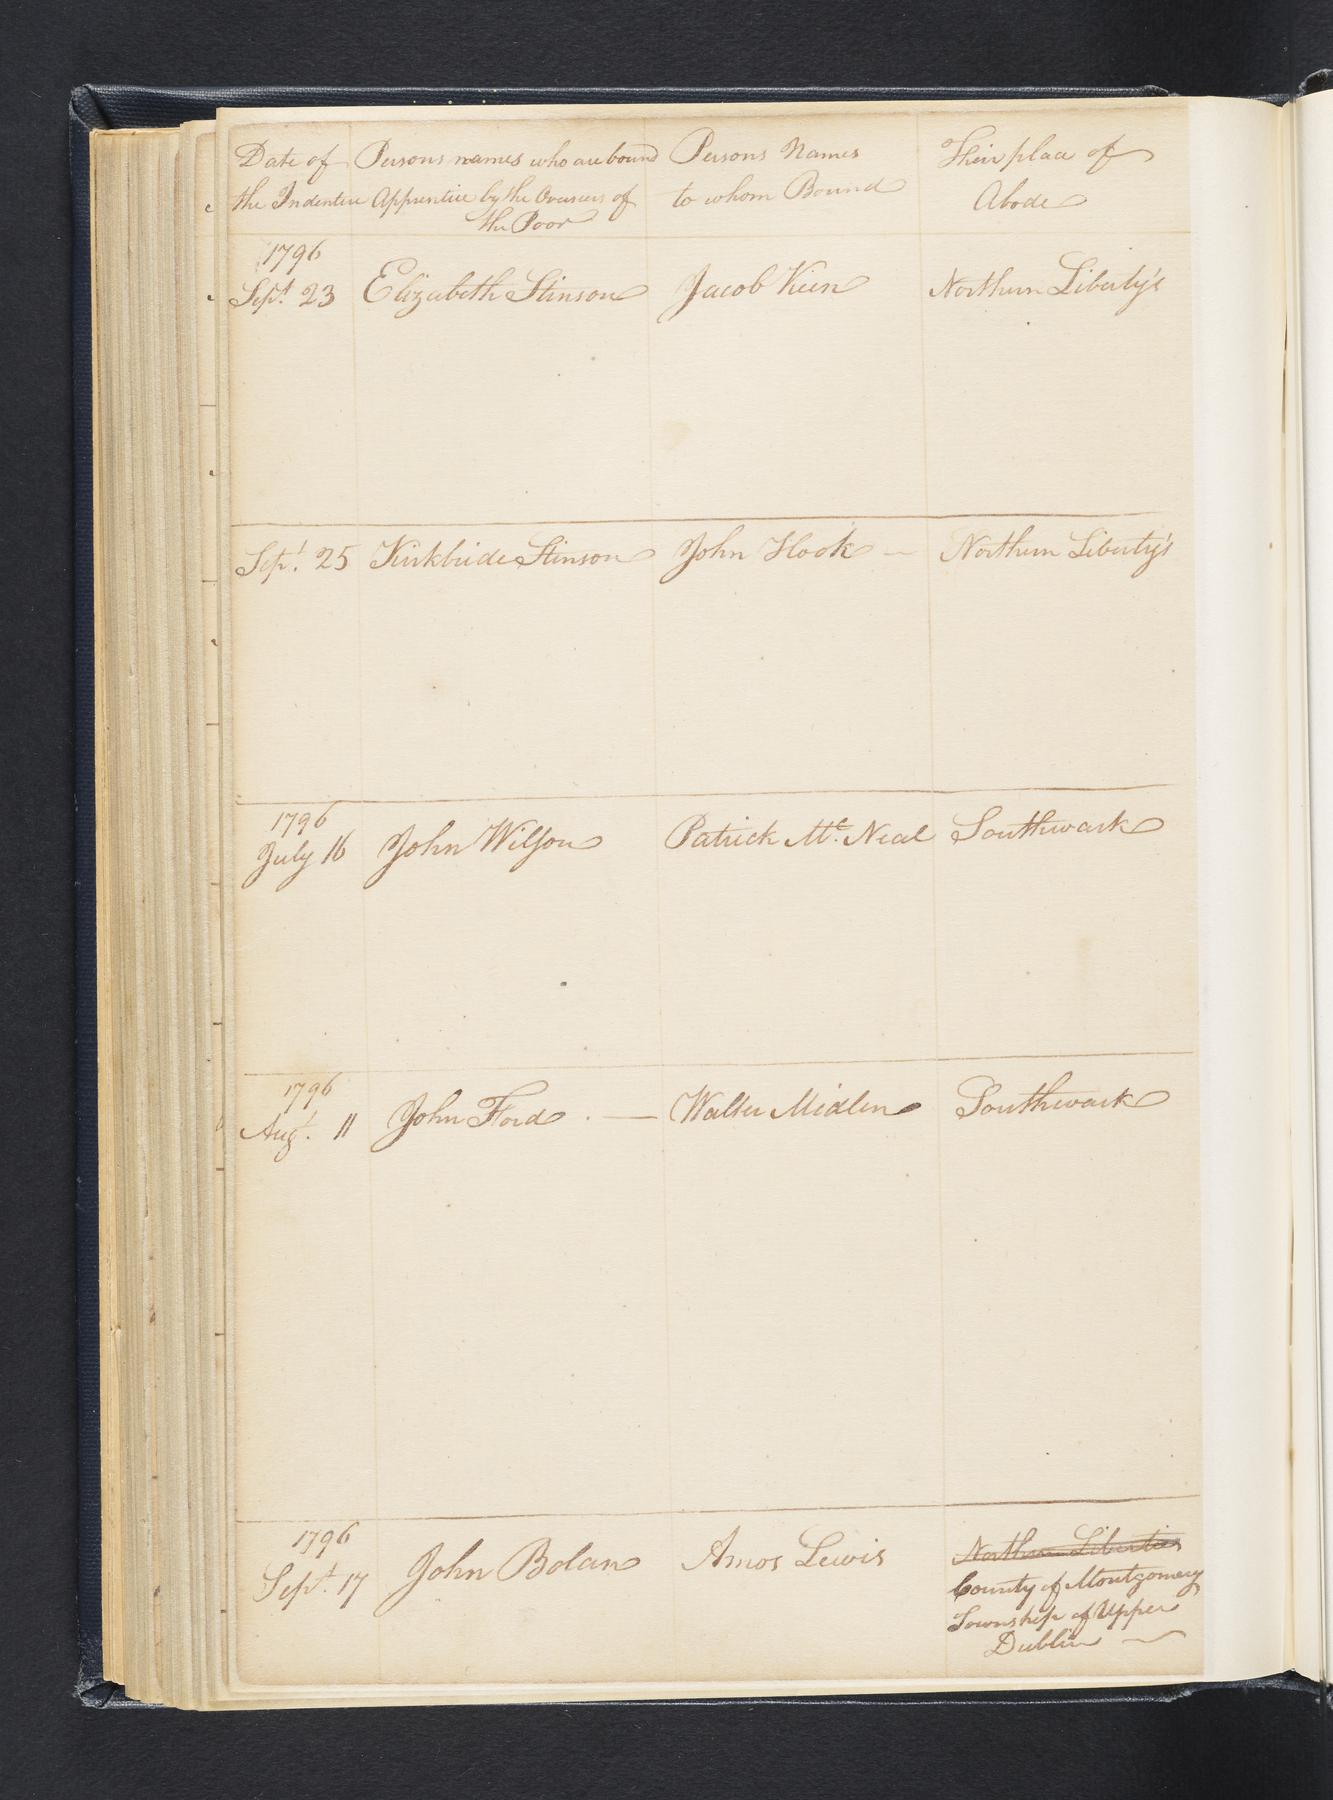 Date of Persons names who are bound Persons Names Their place of
the Indenture Apprentice by the Overseers of to whom Bound Abode
the Poor
1796
Sept. 23 Elizabeth Stinson Jacob Keen Northern Liberty's
Sept. 25 Kirkbride Stinson John Hook — Northern Liberty's
1796
July 16 John Wilson Patrick Mc. Neal Southwark
1796
Augt. 11 John Ford — Walter Midlen Southwark
1796
Sept. 17 John Bolan Amos Lewis Northern Liberties
County of Montgomery
Township of Upper
Dublin